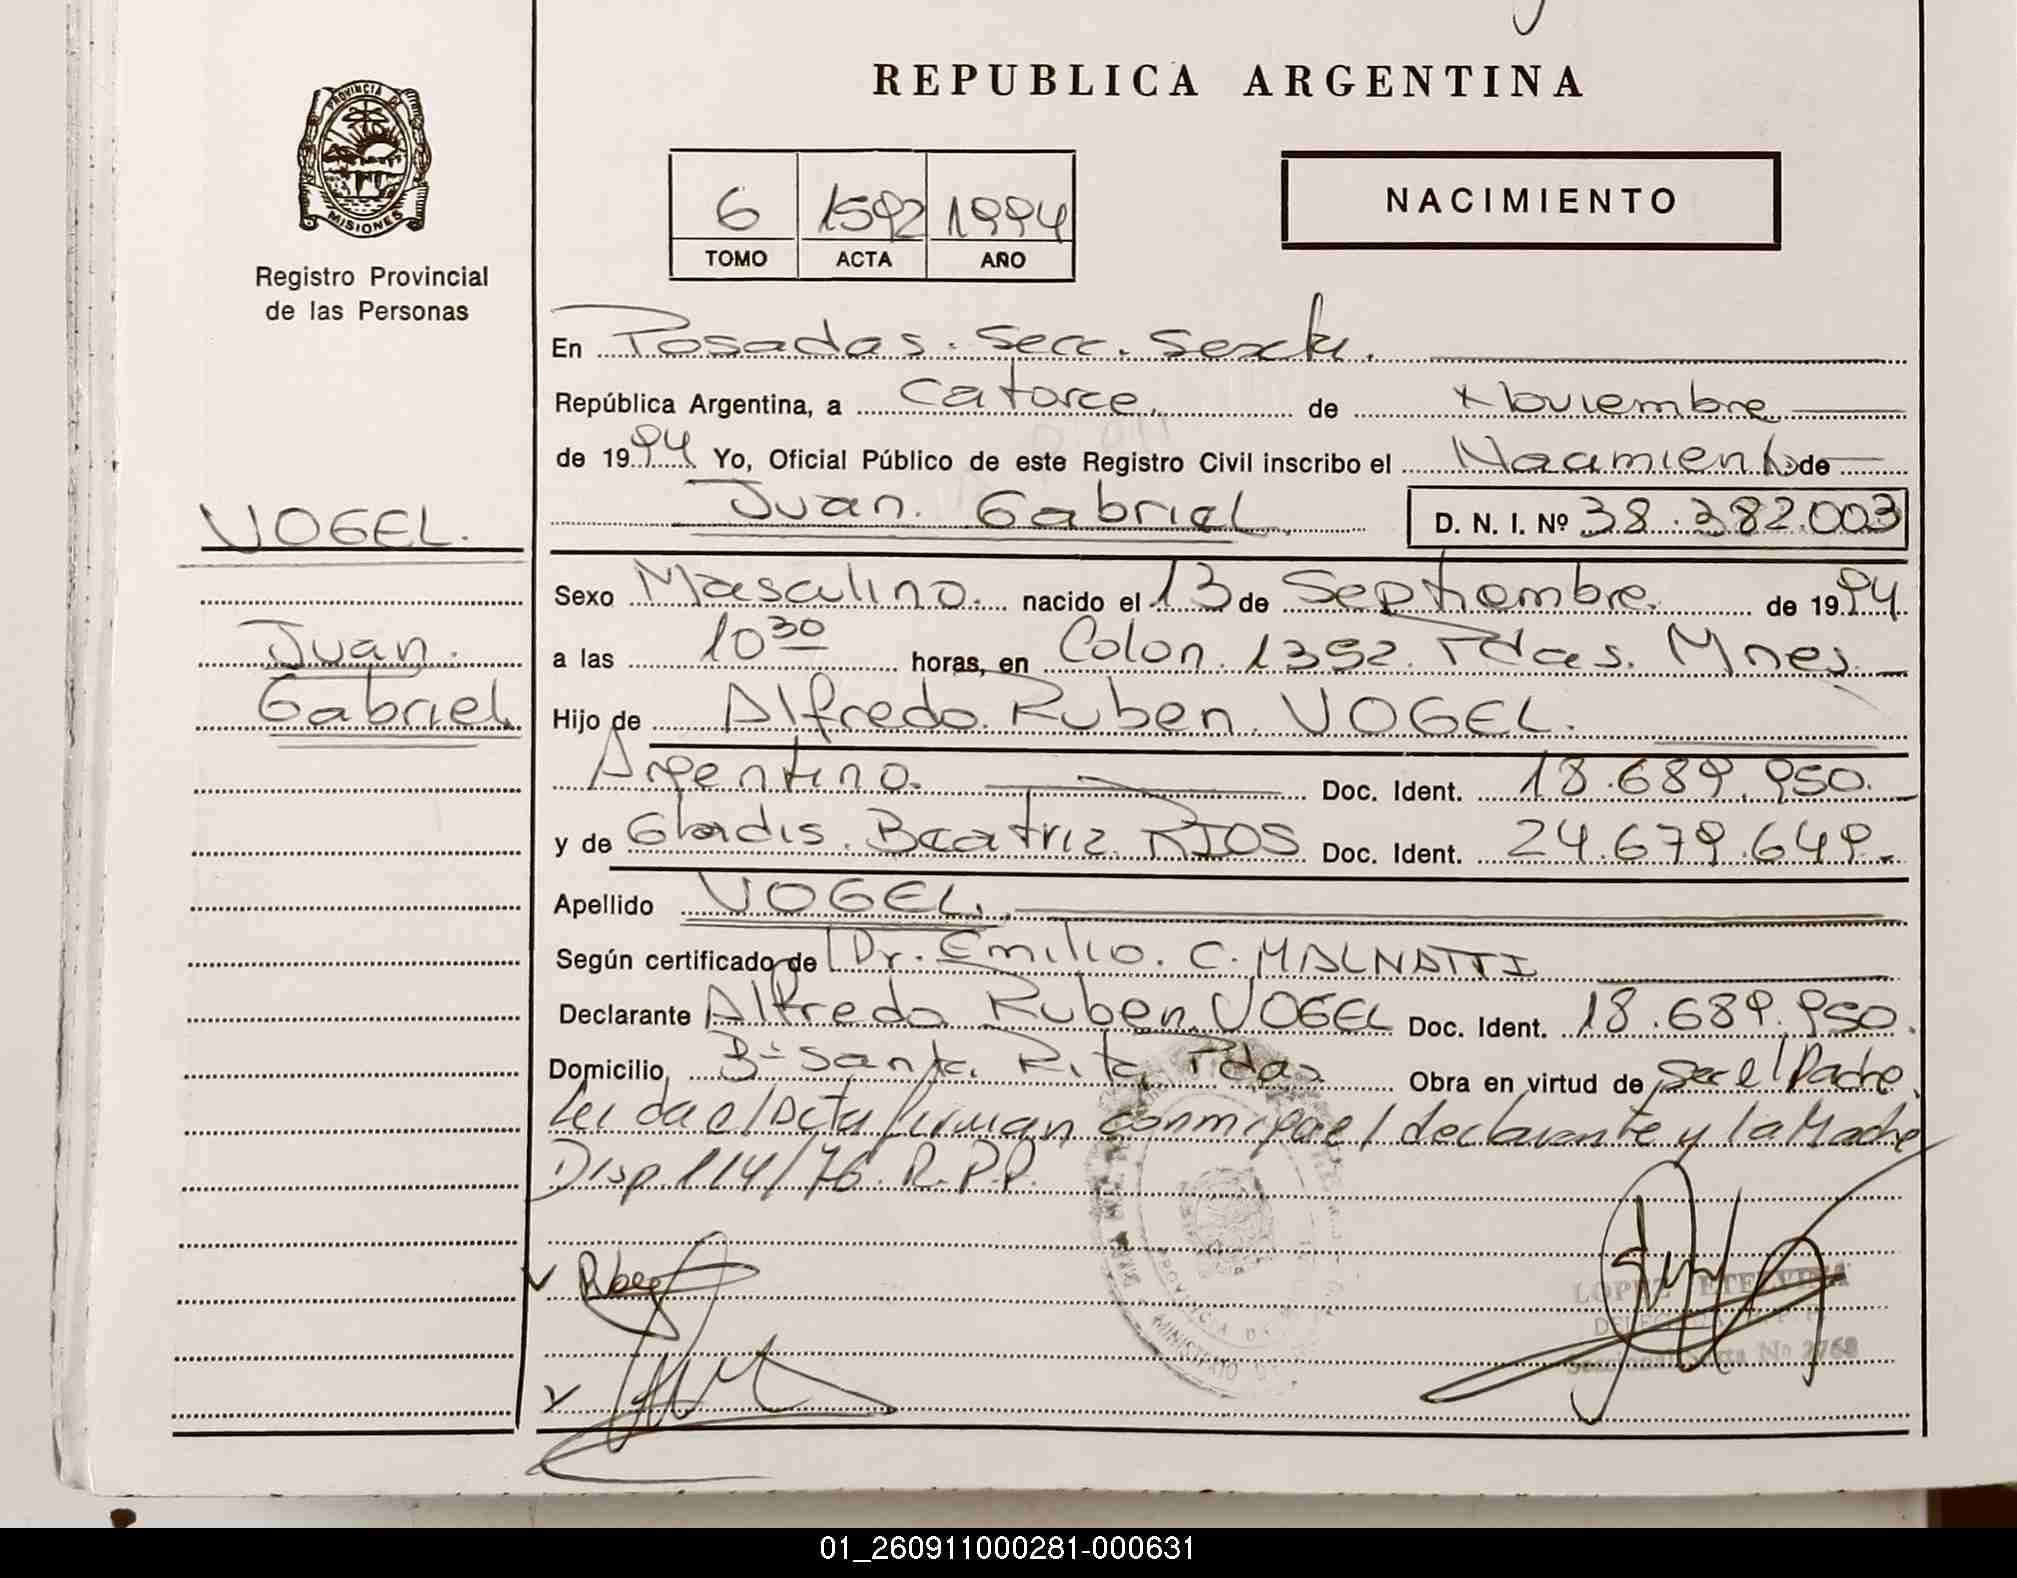 REPUBLICA ARGENTINA
PROVINCIA DE
MISIONES
Registro Provincial
de las Personas
6 1592 1994
TOMO ACTA AÑO
NACIMIENTO
En Posadas. Secc. Sexta.
República Argentina, a Catorce. de Noviembre
de 1994 Yo, Oficial Público de este Registro Civil inscribo el Nacimiento de
Juan. Gabriel. D. N. I. Nº 38.382.003
VOGEL.
Juan.
Gabriel.
Sexo Masculino. nacido el 13 de Septiembre. de 1994
a las 10 30 horas, en Colon. 1392. Pdas. Mnes.
Hijo de Alfredo. Ruben. VOGEL.
Argentino. Doc. Ident. 18.689.950.
y de Gladis. Beatriz. RIOS Doc. Ident. 24.679.649.
Apellido VOGEL.
Según certificado de Dr. Emilio. C. MALNATTI
Declarante Alfredo Ruben. VOGEL Doc. Ident. 18.689.950.
Domicilio Bº Santa. Rita, Pdas. Obra en virtud de ser el Padre.
Leida el Acta firman conmigo el declarante y la Madre
Disp. 114/76. R.P.P.
LOPEZ ETELVINA
DELEGADA
Seccional Sexta Nº 2768
PROVINCIA DE
MINISTERIO
01_260911000281-000631